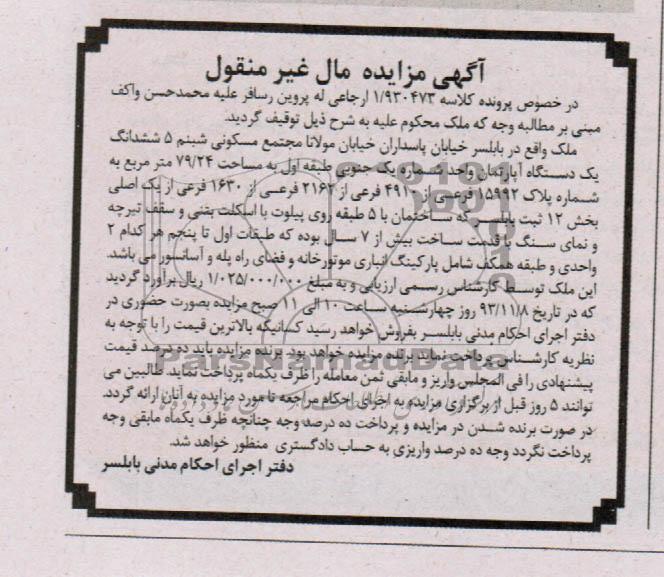 آگهی مزایده مال غیر منقول
در خصوص پرونده کلاسه ۱/۹۳۰۴۷۳ ارجاعی له پروین رسافر علیه محمدحسن واکف
مبنی بر مطالبه وجه که ملک محکوم علیه به شرح ذیل توقیف گردید.
ملک واقع در بابلسر خیابان پاسداران خیابان مولانا مجتمع مسکونی شبنم ۵ ششدانگ
یک دستگاه آپارتمان واحد شماره یک جنوبی طبقه اول به مساحت ۷۹/۲۴ متر مربع به
شماره پلاک ۱۵۹۹۲ فرعی از ۴۹۱ فرعی از ۲۱۶۲ فرعی از ۱۶۳۰ فرعی از یک اصلی
بخش ۱۲ ثبت بابلسر که ساختمان با ۵ طبقه روی پیلوت با اسکلت بتنی و سقف تیرچه
و نمای سنگ با قدمت ساخت بیش از ۷ سال بوده که طبقات اول تا پنجم هر کدام ۲
واحدی و طبقه همکف شامل پارکینگ انباری موتورخانه و فضای راه پله و آسانسور می باشد.
این ملک توسط کارشناس رسمی ارزیابی و به مبلغ ۱/۰۲۵/۰۰۰/۰۰۰ ریال برآورد گردید
که در تاریخ ۹۳/۱۱/۸ روز چهارشنبه ساعت ۱۰ الی ۱۱ صبح مزایده بصورت حضوری در
دفتر اجرای احکام مدنی بابلسر بفروش خواهد رسید کسانیکه بالاترین قیمت را با توجه به
نظریه کارشناس پرداخت نماید برنده مزایده خواهد بود. برنده مزایده باید ده درصد قیمت
پیشنهادی را فی المجلس واریز و مابقی ثمن معامله را ظرف یکماه پرداخت نماید. طالبین می
توانند ۵ روز قبل از برگزاری مزایده به اجرای احکام مراجعه تا مورد مزایده به آنان ارائه گردد.
در صورت برنده شدن در مزایده و پرداخت ده درصد وجه چنانچه ظرف یکماه مابقی وجه
پرداخت نگردد وجه ده درصد واریزی به حساب دادگستری منظور خواهد شد.
دفتر اجرای احکام مدنی بابلسر
ParsNamadData